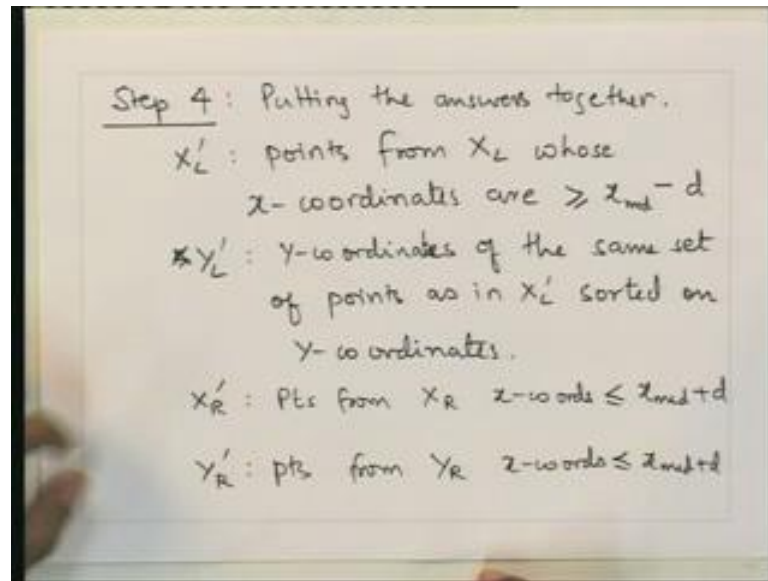 Step 4 : Putting the answers together.
X_L' : points from X_L whose
x-coordinates are ≥ x_med - d
Y_L' : Y-coordinates of the same set
of points as in X_L' sorted on
Y-coordinates.
X_R' : Pts from X_R x-coords ≤ x_med+d
Y_R' : pts from Y_R x-coords ≤ x_med+d